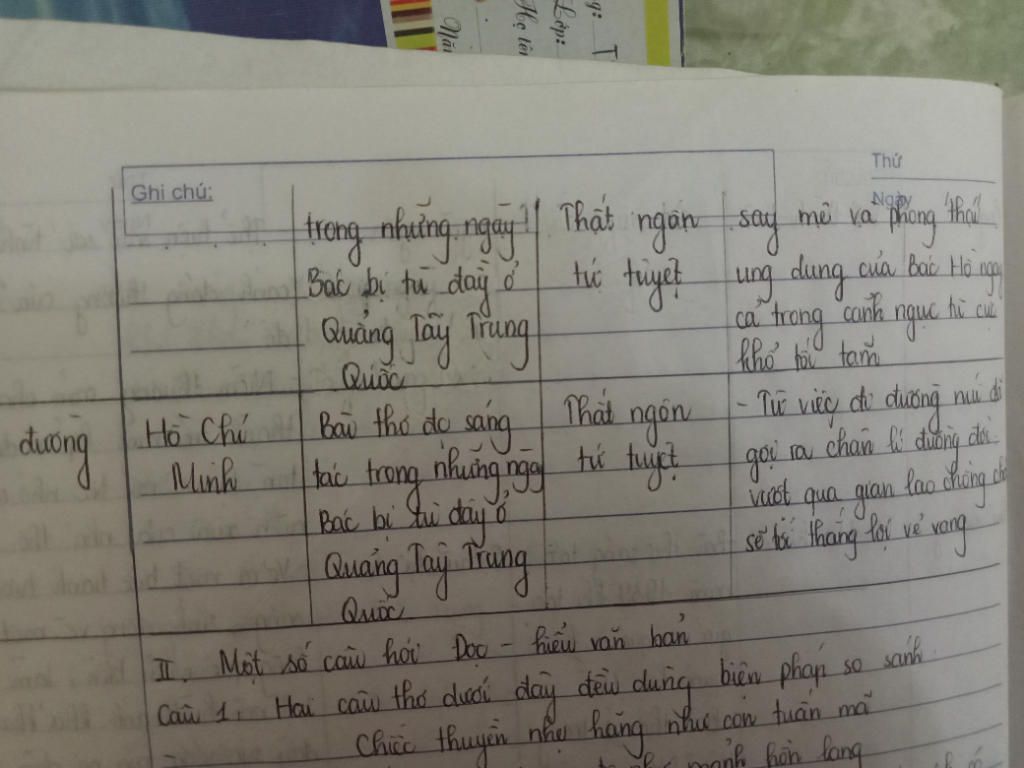 Họ tên
Lớp:
Thứ
Ngày
Ghi chú:
trong những ngày
Bác bị tù đày ở
Quảng Tây Trung
Quốc
Thất ngôn
tứ tuyệt
say mê và phong thái
ung dung của Bác Hồ ngay
cả trong cảnh ngục tù cực
khổ tối tăm
đường
Hồ Chí
Minh
Bài thơ đc sáng
tác trong những ngày
Bác bị tù đày ở
Quảng Tây Trung
Quốc
Thất ngôn
tứ tuyệt
- Từ việc đi đường núi đã
gợi ra chân lí đường đời
vượt qua gian lao chồng
sẽ tới thắng lợi vẻ vang
II. Một số câu hỏi Đọc - hiểu văn bản
Câu 1. Hai câu thơ dưới đây đều dùng biện pháp so sánh
Chiếc thuyền nhẹ hăng như con tuấn mã
mảnh hồn làng